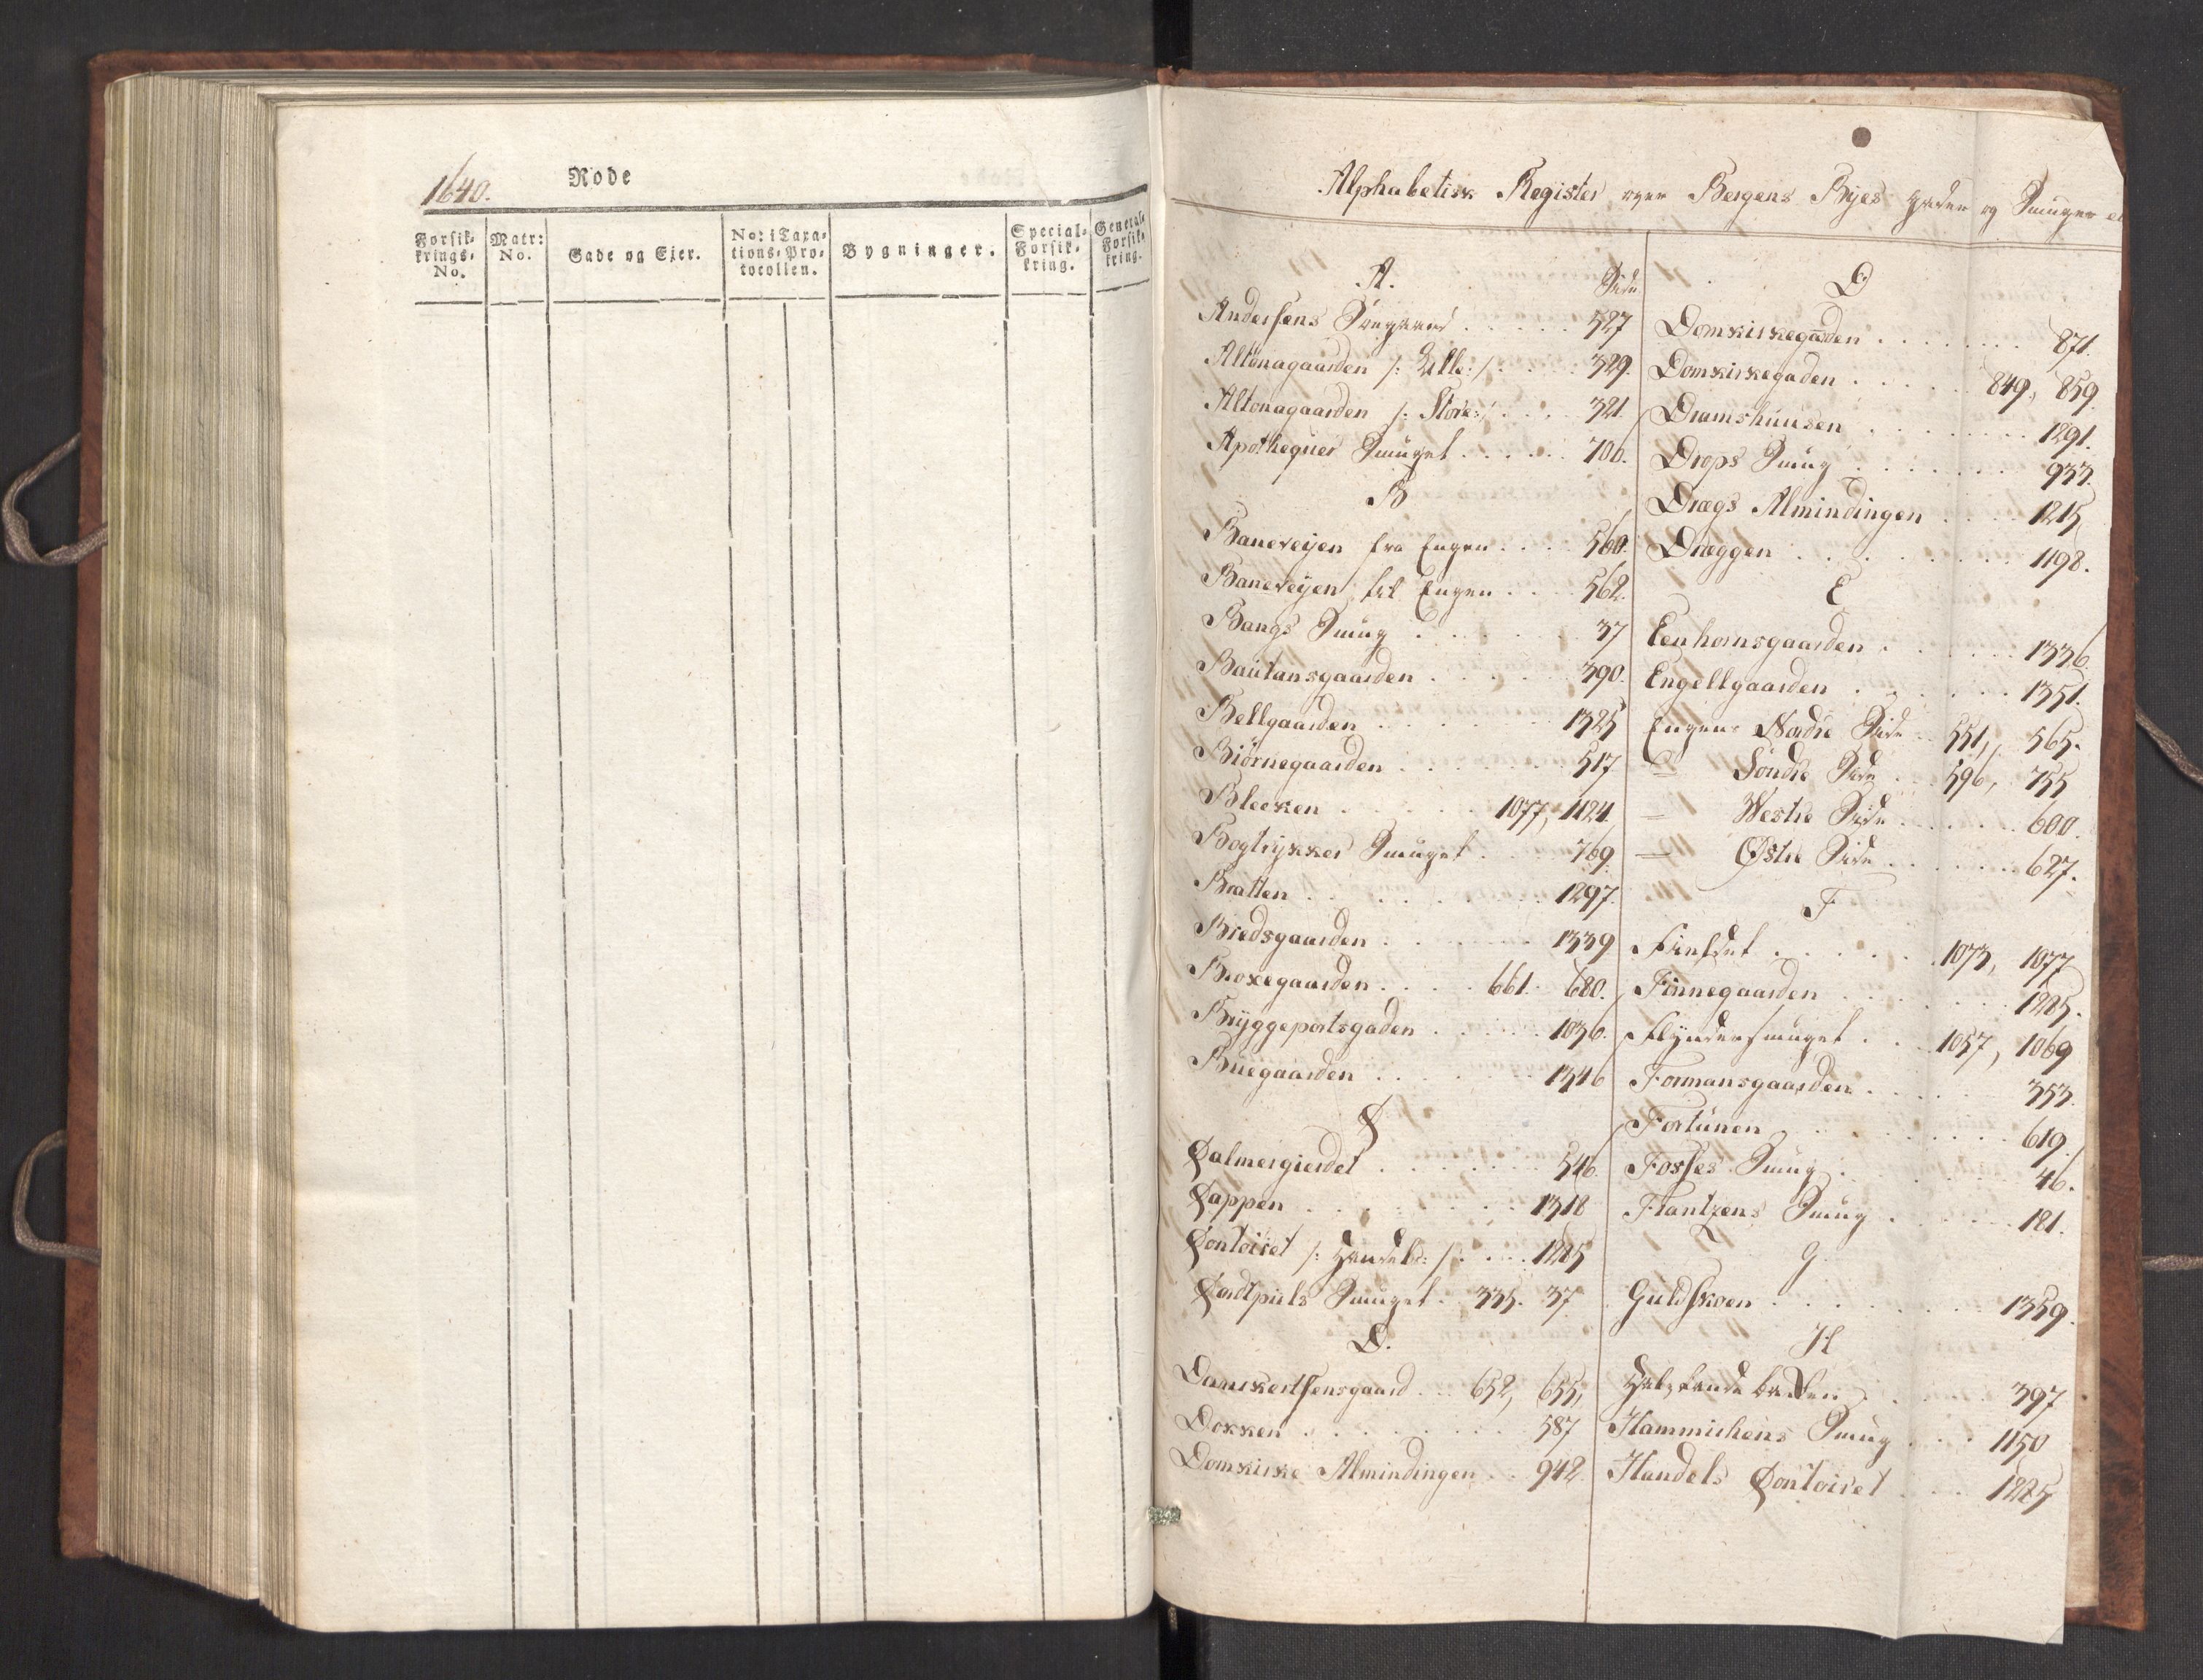 1640.
Rode
Forsik-
krings-
No.
Matr:
No.
Gade og Eier.
No: i Taxa-
tions-Pro-
tocollen.
Bygninger.
Special-
Forsik-
kring.
General-
Forsik-
kring.
Alphabetisk Register over Bergens Byes Gader og Smuger
A. Side
Andersens 527
Altonagaarden /: Lille :/ 329.
Altonagaarden /: Store :/ 321.
Apothequer Smuget 706.
B
Baneveijen fra Engen 560.
Baneveijen til Engen 562.
Bangs Smug 37
Bautansgaarden 390.
Bellgaarden 1325
Biörnegaarden 517
Bleeken 1077, 1124.
Bogtrykker Smuget 769
Bratten 1297.
Bredsgaarden 1339
Broxegaarden 661. 680.
Bryggeportsgaden 1036.
Buegaarden 1346
C
Calmergierdet 546.
Cappen 1318
Contoiret /: Handels :/ 1285
Cordtpiils Smuget 335. 37
D.
Danckertsensgaard 652, 655,
Dokken 587
Domkirke Almindingen 942
D
Domkirkegaarden 871.
Domkirkegaden 849, 859.
Dramshuusen 1291.
Drops Smug 933.
Drægs Almindingen 1215,
Dræggen 1198.
E
Eenhornsgaarden 1336.
Engellgaarden 1351.
Engens Nordre Side 551, 565.
— Söndre Side 596, 755
— Westre Side 600.
— Østre Side 627.
F
1073, 1077
Finnegaarden 1285.
Flyndersmuget 1057, 1069
Formansgaarden 353.
Fortunen 619.
Fosses Smug 46.
Frantzens Smug 181.
G
Guldskoen 1359.
H
397
Hammichens Smug 1150
Handels Contoiret 1285